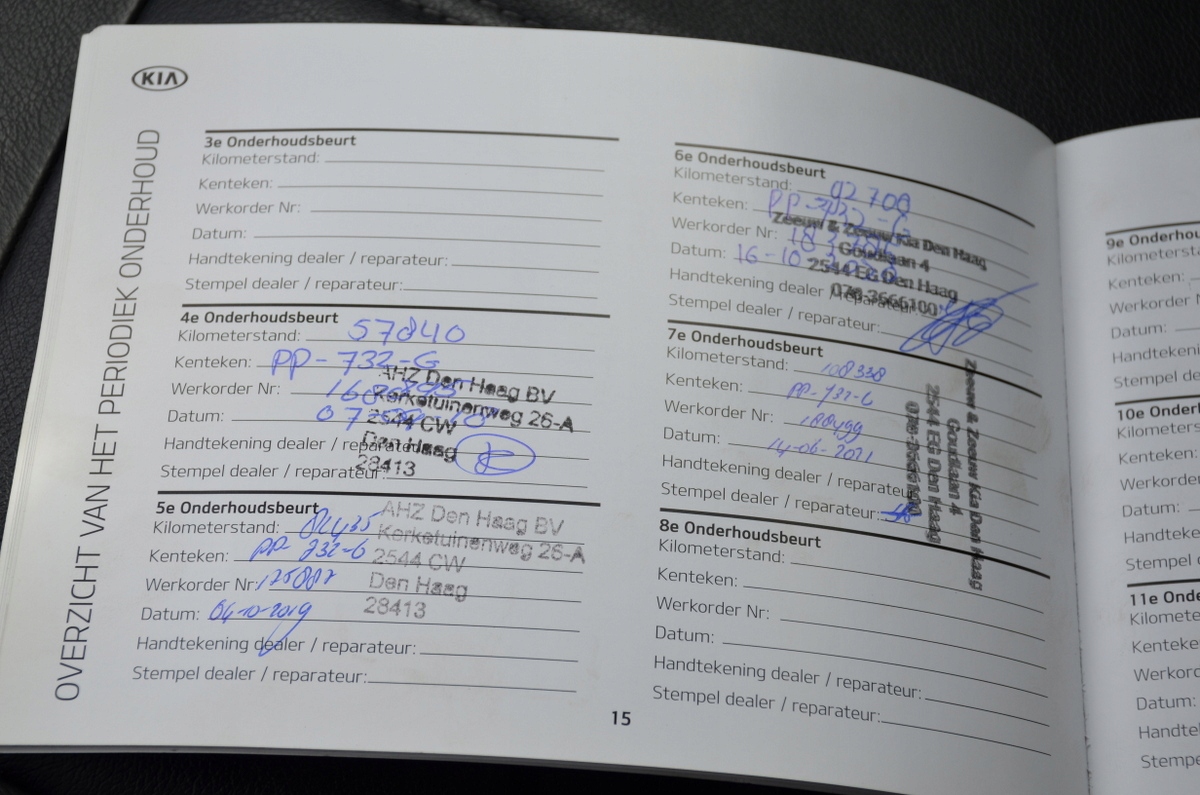 KIA
OVERZICHT VAN HET PERIODIEK ONDERHOUD
3e Onderhoudsbeurt
Kilometerstand:
Kenteken:
Werkorder Nr:
Datum:
Handtekening dealer / reparateur:
Stempel dealer / reparateur:
4e Onderhoudsbeurt
Kilometerstand: 57840
Kenteken: PP-732-G
Werkorder Nr:
Datum:
Handtekening dealer / reparateur:
Stempel dealer / reparateur:
AHZ Den Haag BV
Kerketuinenweg 26-A
2544 CW
Den Haag
28413
5e Onderhoudsbeurt
Kilometerstand:
Kenteken: PP-732-G
Werkorder Nr:
Datum: 04-10-2019
Handtekening dealer / reparateur:
Stempel dealer / reparateur:
AHZ Den Haag BV
Kerketuinenweg 26-A
2544 CW
Den Haag
28413
6e Onderhoudsbeurt
Kilometerstand: 92700
Kenteken:
Werkorder Nr:
Datum: 16-10
Handtekening dealer / reparateur:
Stempel dealer / reparateur:
Zeeuw & Zeeuw Kia Den Haag
Goudlaan 4
2544 EG Den Haag
070-3666100
7e Onderhoudsbeurt
Kilometerstand: 108338
Kenteken: PP-732-G
Werkorder Nr: 188499
Datum: 14-06-2021
Handtekening dealer / reparateur:
Stempel dealer / reparateur:
Zeeuw & Zeeuw Kia Den Haag
Goudlaan 4
2544 EG Den Haag
8e Onderhoudsbeurt
Kilometerstand:
Kenteken:
Werkorder Nr:
Datum:
Handtekening dealer / reparateur:
Stempel dealer / reparateur:
15
9e Onderhou
Kilometersta
Kenteken:
Werkorder
Datum:
Handtekenin
Stempel de
10e Onderh
Kilometers
Kenteken:
Werkorde
Datum:
Handteke
Stempel d
11e Onde
Kilomete
Kenteke
Werkord
Datum:
Handte
Stempe